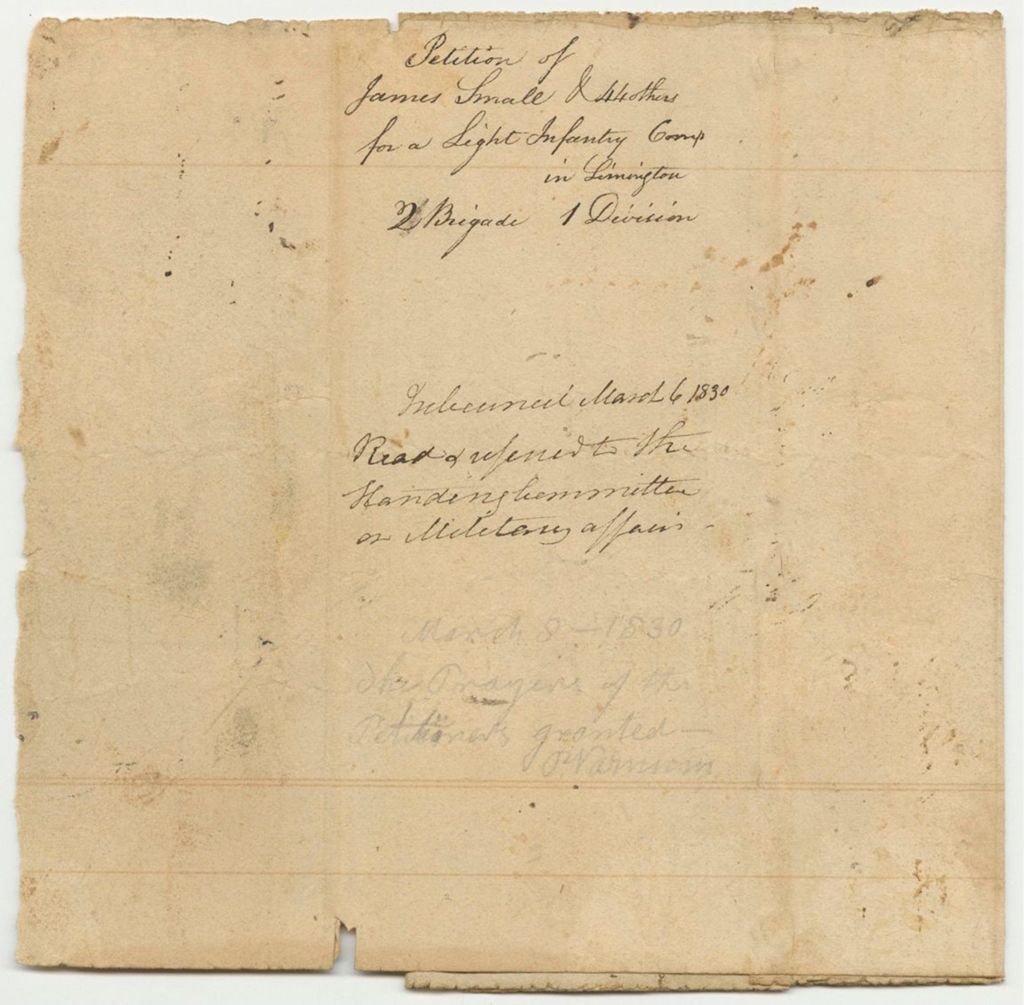 Petition of
James Small & 44 others
for a Light Infantry Comp
in Limington
2 Brigade 1 Division
In Council March 6 1830
Read & referred to the
Standing Committee
on Military affairs
March 8 - 1830
The Prayers of the
Petitioners granted -
P Varnum